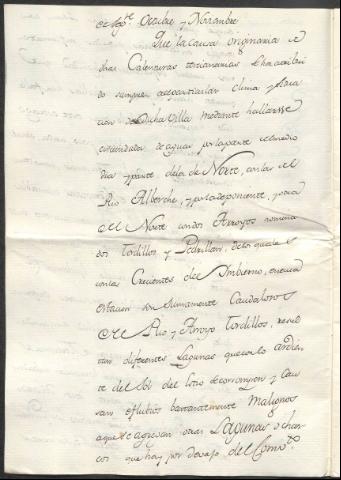 de Agto. Octubre y Noviembre
Que la causa originaria de
dhas Calenturas tercianarias lha atribui
do siempre al particular clima y situa
cion de Dicha Villa mediante hallarse
circundada de aguas por la parte del medio
dia y parte de la de Norte, con las del
Rio Alberche, y por la de poniente, y parte
del Norte con dos Arroyos nomina
dos Tordillos y Pedrillan, de los quales
con las Crecientes del Imbierno, en cuia
estacion son sumamente Caudalosos
el Rio y Arroyo Tordillos, resul
tan diferentes Lagunas que con lo ardien
te del Sol del Estio se corrompen y Cau
san eflubios bastantemente Malignos
a que se agregan otras Lagunas o char
cos que hay por devajo del Combto.